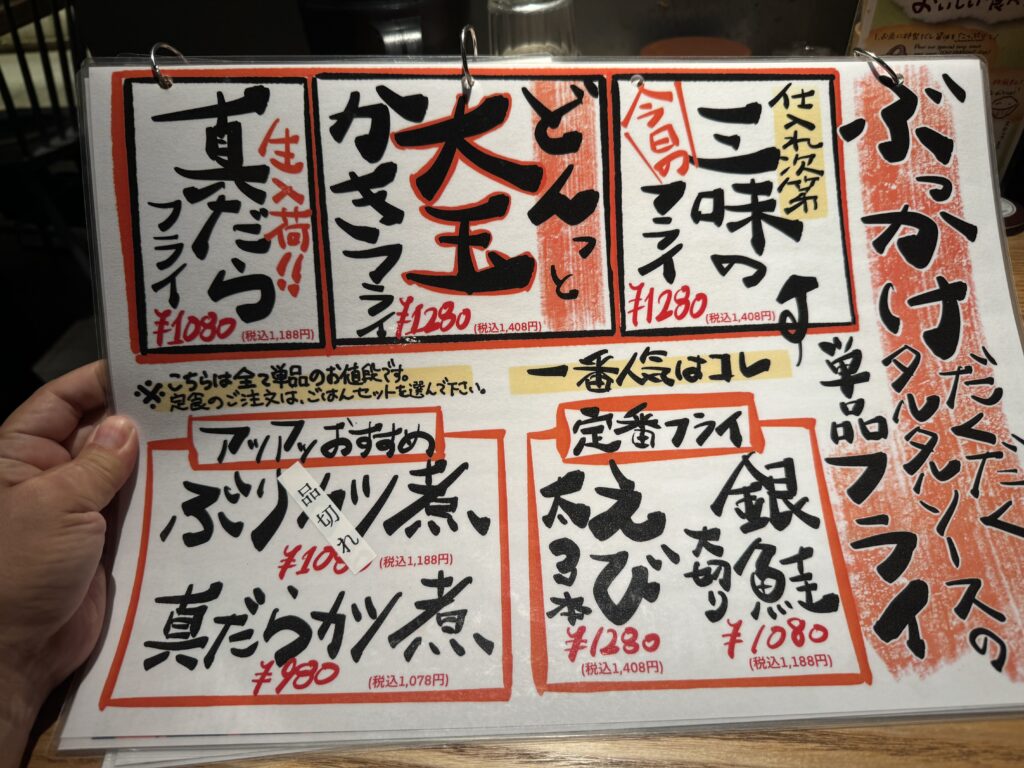 ぶっかけ
だくだくタルタルソースの
単品フライ
仕入れ次第
今日の
三味の
フライ
¥1280
(税込1,408円)
どんっと
大玉
かきフライ
¥1280
(税込1,408円)
生入荷!!
真だら
フライ
¥1080
(税込1,188円)
一番人気はコレ
※こちらは全て単品のお値段です。
定食のご注文は、ごはんセットを選んで下さい。
定番フライ
銀鮭
大切り
¥1080
(税込1,188円)
えび
太3本
¥1280
(税込1,408円)
アツアツおすすめ
ぶりカツ煮
品切れ
¥1080
(税込1,188円)
真だらカツ煮
¥980
(税込1,078円)